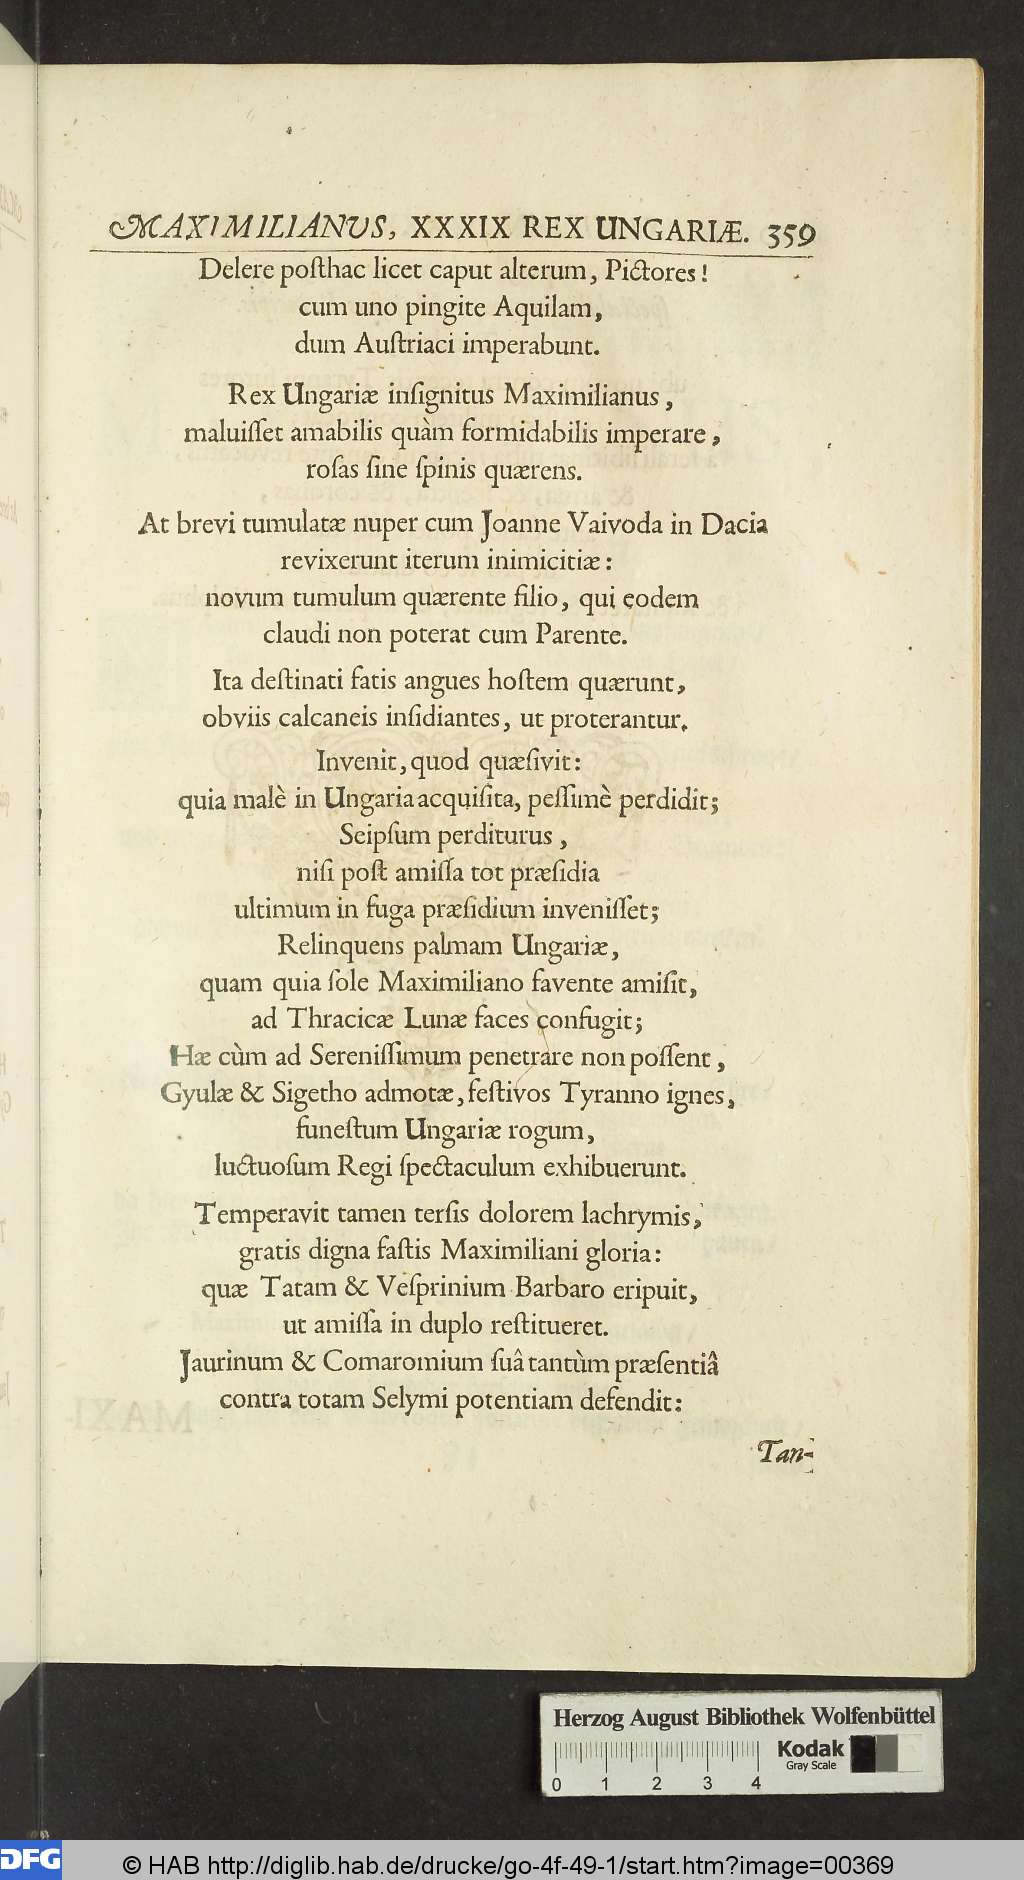 MAXIMILIANUS, XXXIX REX UNGARIÆ. 359
Delere poſthac licet caput alterum, Pictores!
cum uno pingite Aquilam,
dum Auſtriaci imperabunt.
Rex Ungariæ inſignitus Maximilianus,
maluiſſet amabilis quàm formidabilis imperare,
roſas ſine ſpinis quærens.
At brevi tumulatæ nuper cum Joanne Vaivoda in Dacia
revixerunt iterum inimicitiæ:
novum tumulum quærente filio, qui eodem
claudi non poterat cum Parente.
Ita deſtinati fatis angues hoſtem quærunt,
obviis calcaneis inſidiantes, ut proterantur.
Invenit, quod quæſivit:
quia malè in Ungaria acquiſita, peſſimè perdidit;
Seipſum perditurus,
niſi poſt amiſſa tot præſidia
ultimum in fuga præſidium inveniſſet;
Relinquens palmam Ungariæ,
quam quia ſole Maximiliano favente amiſit,
ad Thracicæ Lunæ faces confugit;
Hæ cùm ad Sereniſſimum penetrare non poſſent,
Gyulæ & Sigetho admotæ, feſtivos Tyranno ignes,
funeſtum Ungariæ rogum,
luctuoſum Regi ſpectaculum exhibuerunt.
Temperavit tamen terſis dolorem lachrymis,
gratis digna faſtis Maximiliani gloria:
quæ Tatam & Veſprinium Barbaro eripuit,
ut amiſſa in duplo reſtitueret.
Jaurinum & Comaromium ſuâ tantùm præſentiâ
contra totam Selymi potentiam defendit:
Tan-
Herzog August Bibliothek Wolfenbüttel
Kodak
Gray Scale
0 1 2 3 4
DFG
© HAB http://diglib.hab.de/drucke/go-4f-49-1/start.htm?image=00369